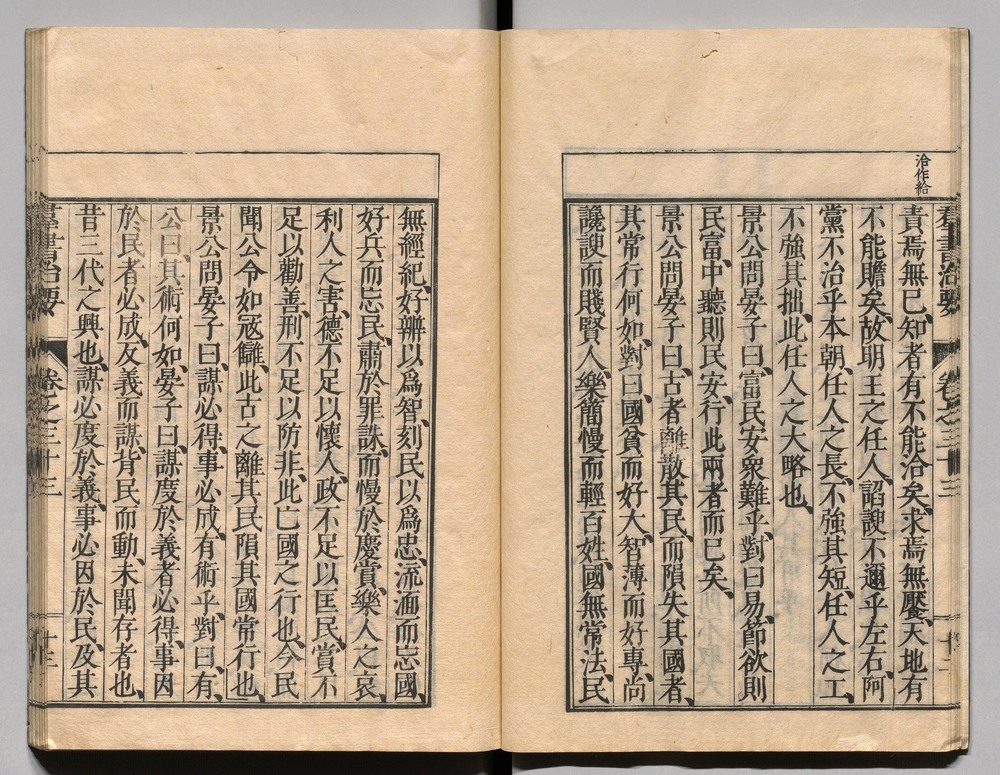 洽作給
群書治要 卷之三十三 十二
責焉無已、知者有不能洽矣、求焉無饜、天地有
不能贍矣、故明王之任人、諂諛不邇乎左右、阿
黨不治乎本朝、任人之長、不強其短、任人之工、
不強其拙、此任人之大略也、
景公問晏子曰、富民安衆難乎、對曰易、節欲則
民富、中聽則民安、行此兩者而已矣、
景公問晏子曰、古者離散其民、而隕失其國者、
其常行何如、對曰、國貧而好大、智薄而好專、尚
讒諛而賤賢人、樂簡慢而輕百姓、國無常法、民
無經紀、好辯以爲智、刻民以爲忠、流湎而忘國、
好兵而忘民、肅於罪誅、而慢於慶賞、樂人之哀、
利人之害、德不足以懷人、政不足以匡民、賞不
足以勸善、刑不足以防非、此亡國之行也、今民
聞公令如寇讎、此古之離其民隕其國常行也、
景公問晏子曰、謀必得、事必成、有術乎、對曰、有、
公曰、其術何如、晏子曰、謀度於義者必得、事因
於民者必成、反義而謀、背民而動、未聞存者也、
昔三代之興也、謀必度於義、事必因於民、及其
群書治要 卷之三十三 十三